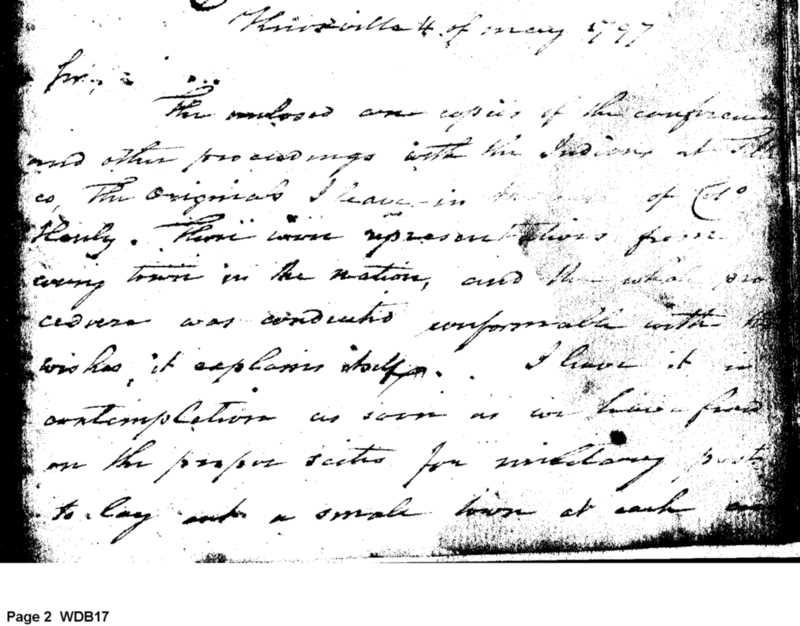 Knoxville 4 of may 1797
Sir,
The enclosed are copies of the conference
and other proceedings with the Indians at Tell
co, The Originals I leave in the of Colo
Henly. There were representatives from
every town in the nation, and the whole pro
cedure was conducted conformable with the
wishes, it explains itself. I have it in
contemplation as soon as we have fixed
on the proper scites for military posts
to lay out a small town at each
Page 2 WDB17